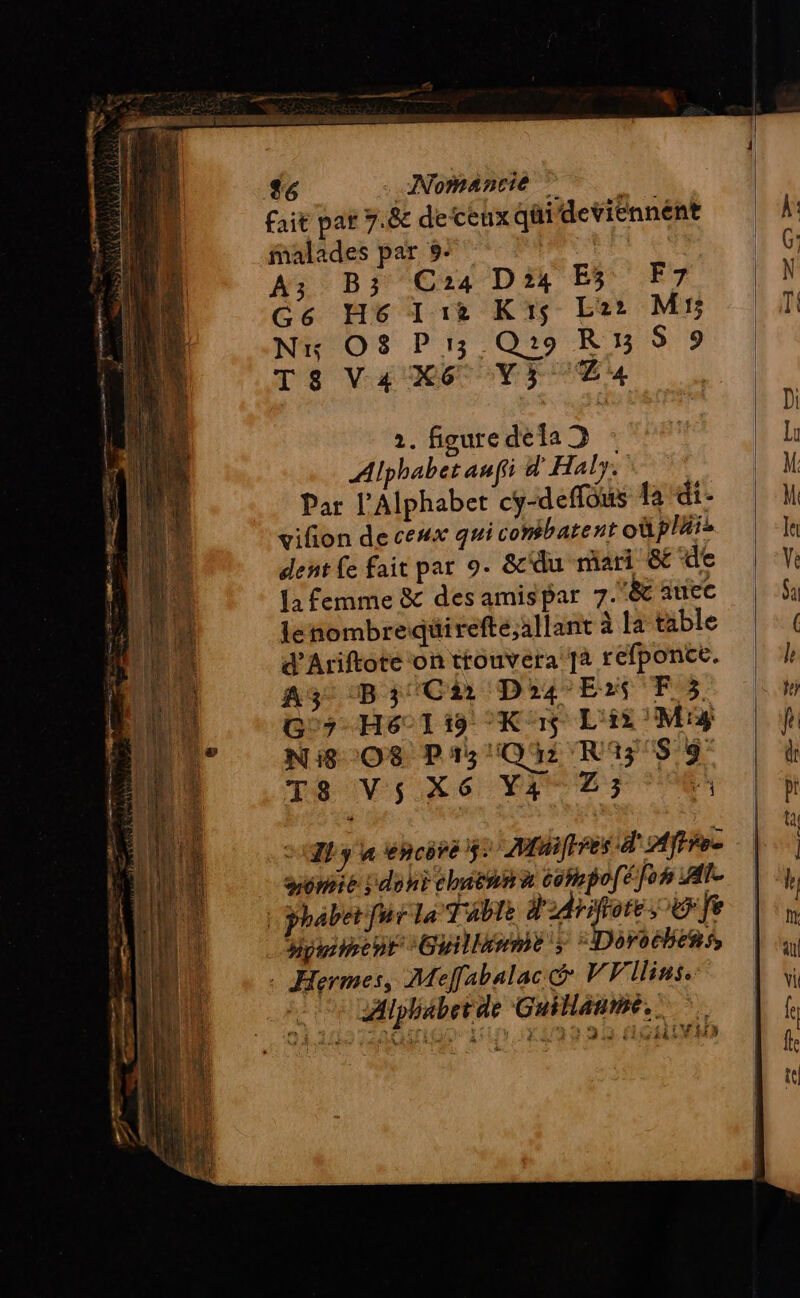 86 Nomancie
fait par 7. & de ceux qui deviennent
malades par 9.
A 3 B 3 C 24 D 24 E 3 F 7
G 6 H 6 I 12 K 15 L 22 M 15
N 15 O 8 P 13 Q 29 R 13 S 9
T 8 V 4 X 6 Y 3 Z 4
2. figure de la ☽
Alphabet auſſi d'Haly.
Par l'Alphabet cy-deſſous la di-
viſion de ceux qui combatent ou plai-
dent ſe fait par 9. & du mari & de
la femme & des amis par 7. & avec
le nombre qui reſte, allant à la table
d'Ariſtote on trouvera la reſponce.
A 3 B 3 C 22 D 24 E 25 F 3
G 7 H 6 I 19 K 15 L 12 M 14
N 18 O 8 P 15 Q 12 R 13 S 9
T 8 V 5 X 6 Y 4 Z 3
Il y a encore 5. Maiſtres d'Aſtro-
nomie, dont chacun a compoſé ſon Al-
phabet ſur la Table d'Ariſtote, & ſe
nomment Guillaume, Dorocheus,
Hermes, Meſſabalac & VVllius.
Alphabet de Guillaume.